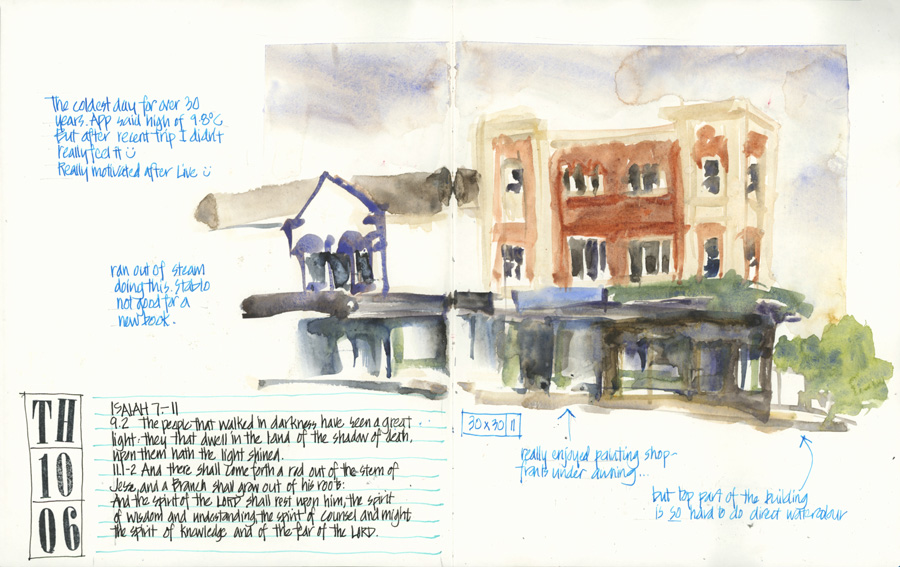 The coldest day for over 30
years. App said high of 9.8°C
But after recent trip I didn't
really feel it ü
Really motivated after Live ü
ran out of steam
doing this. Stabilo
not good for a
new book.
TH
10
06
ISAIAH 7-11
9.2 The people that walked in darkness have seen a great
light: they that dwell in the land of the shadow of death,
upon them hath the light shined.
11.1-2 And there shall come forth a rod out of the stem of
Jesse, and a Branch shall grow out of his roots:
And the spirit of the LORD shall rest upon him, the spirit
of wisdom and understanding, the spirit of counsel and might
the spirit of knowledge and of the fear of the LORD.
30x30 11
really enjoyed painting shop-
fronts under awning...
but top part of the building
is so hard to do direct watercolour